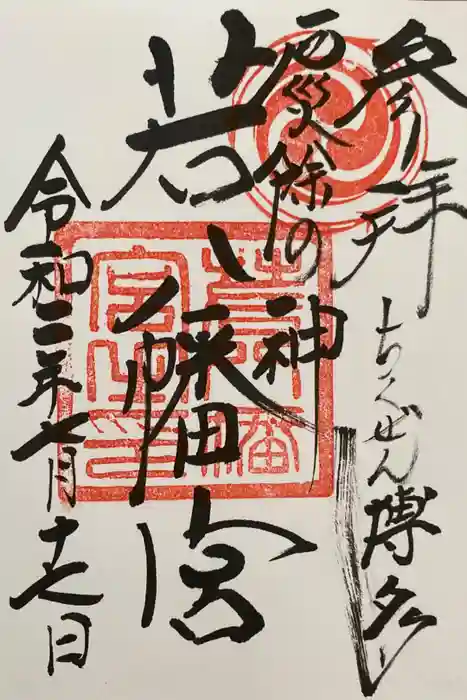 参拝
ちくぜん博多
厄災除の神
若八幡宮
令和二年七月十七日
若八幡
宮之印